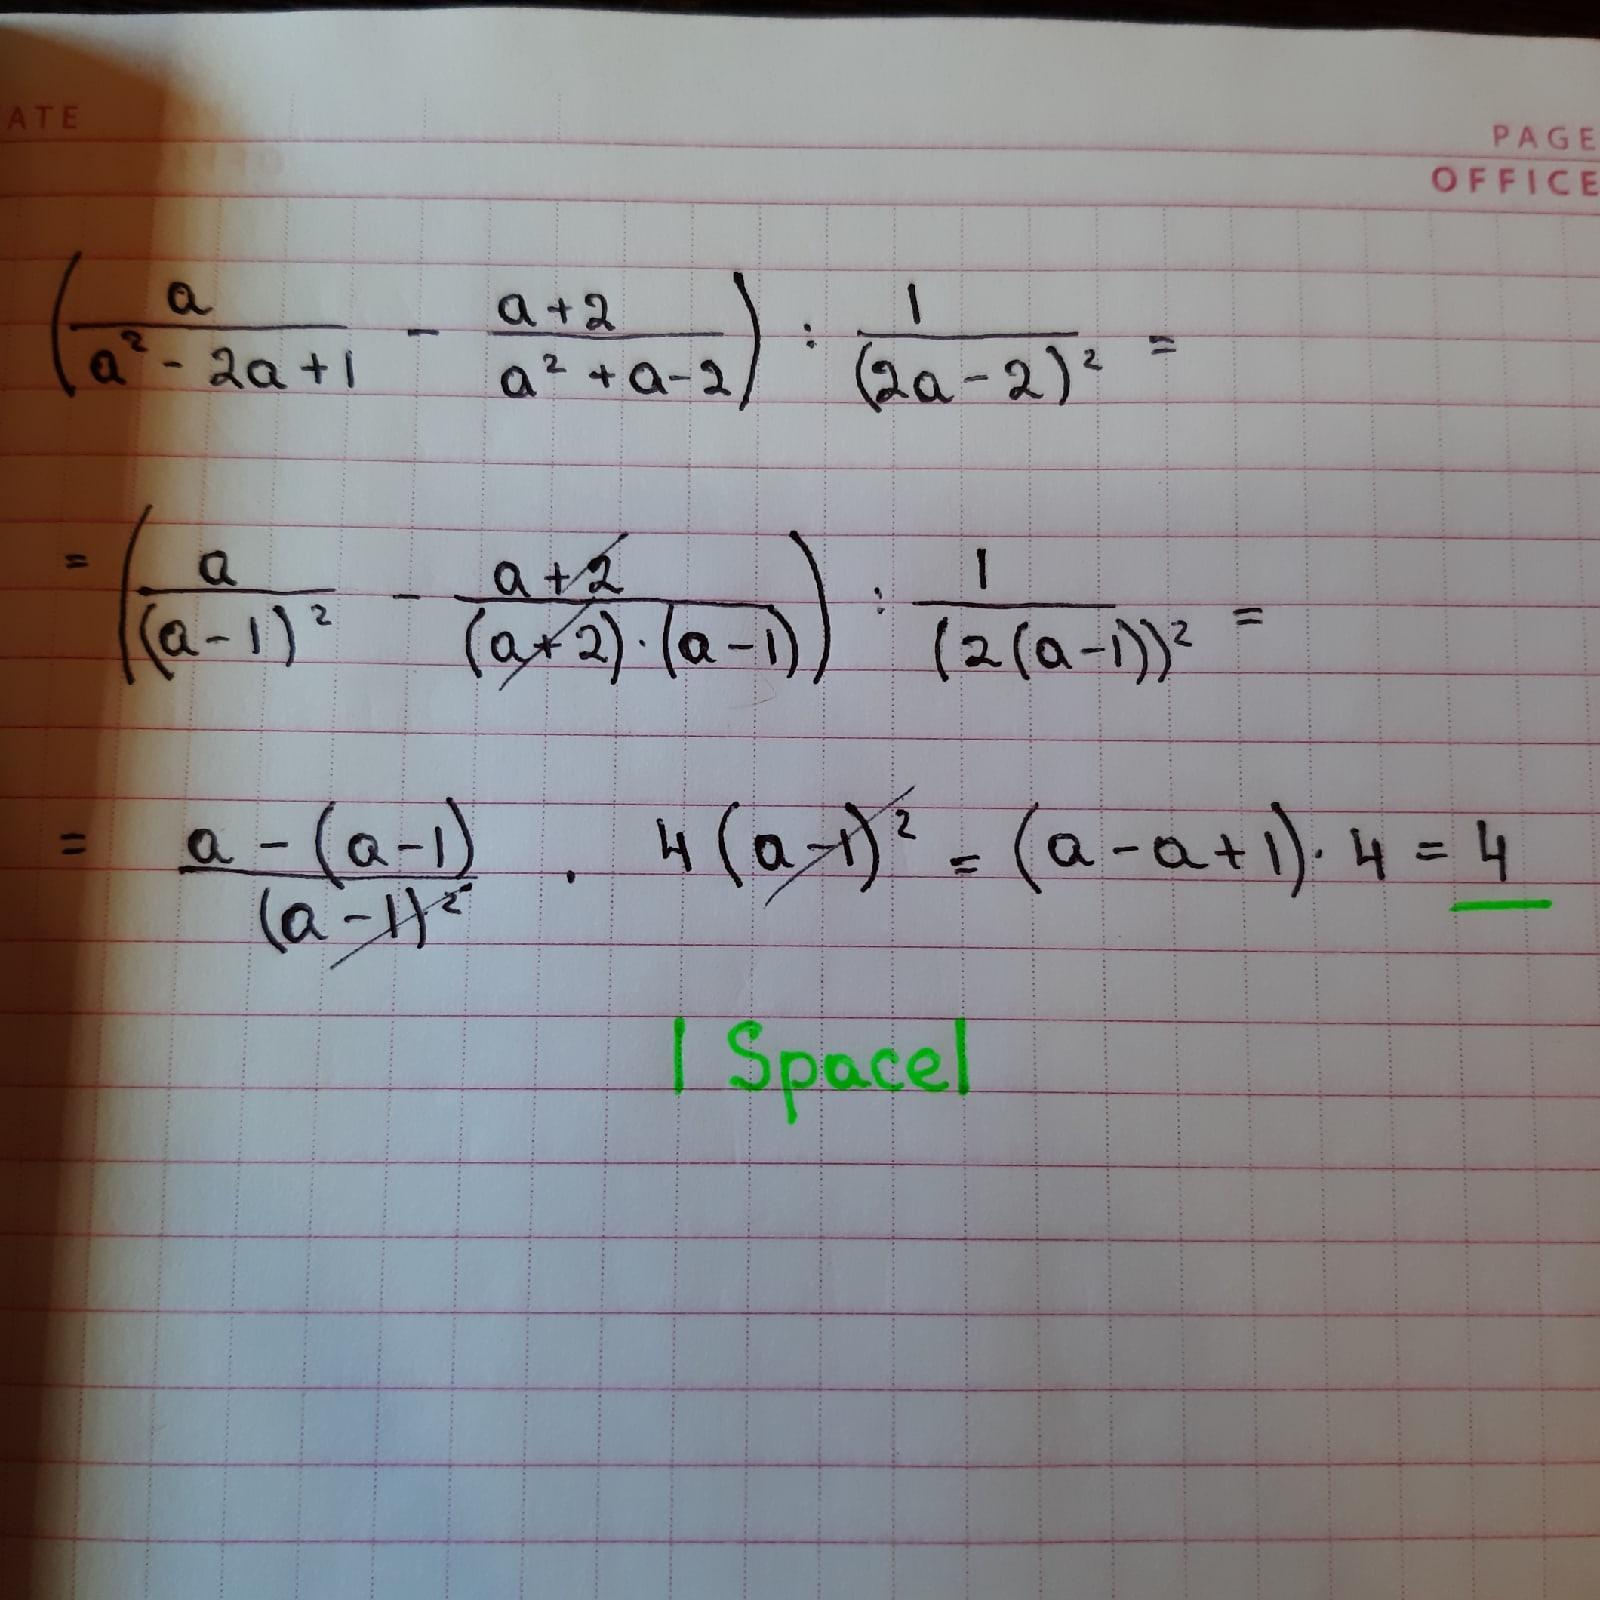 ATE
PAGE
OFFICE
(a/(a² - 2a + 1) - (a + 2)/(a² + a - 2)) : 1/(2a - 2)² =
= (a/(a - 1)² - (a + 2)/((a + 2) · (a - 1))) : 1/(2(a - 1))² =
= (a - (a - 1))/(a - 1)² · 4(a - 1)² = (a - a + 1) · 4 = 4
| Space|